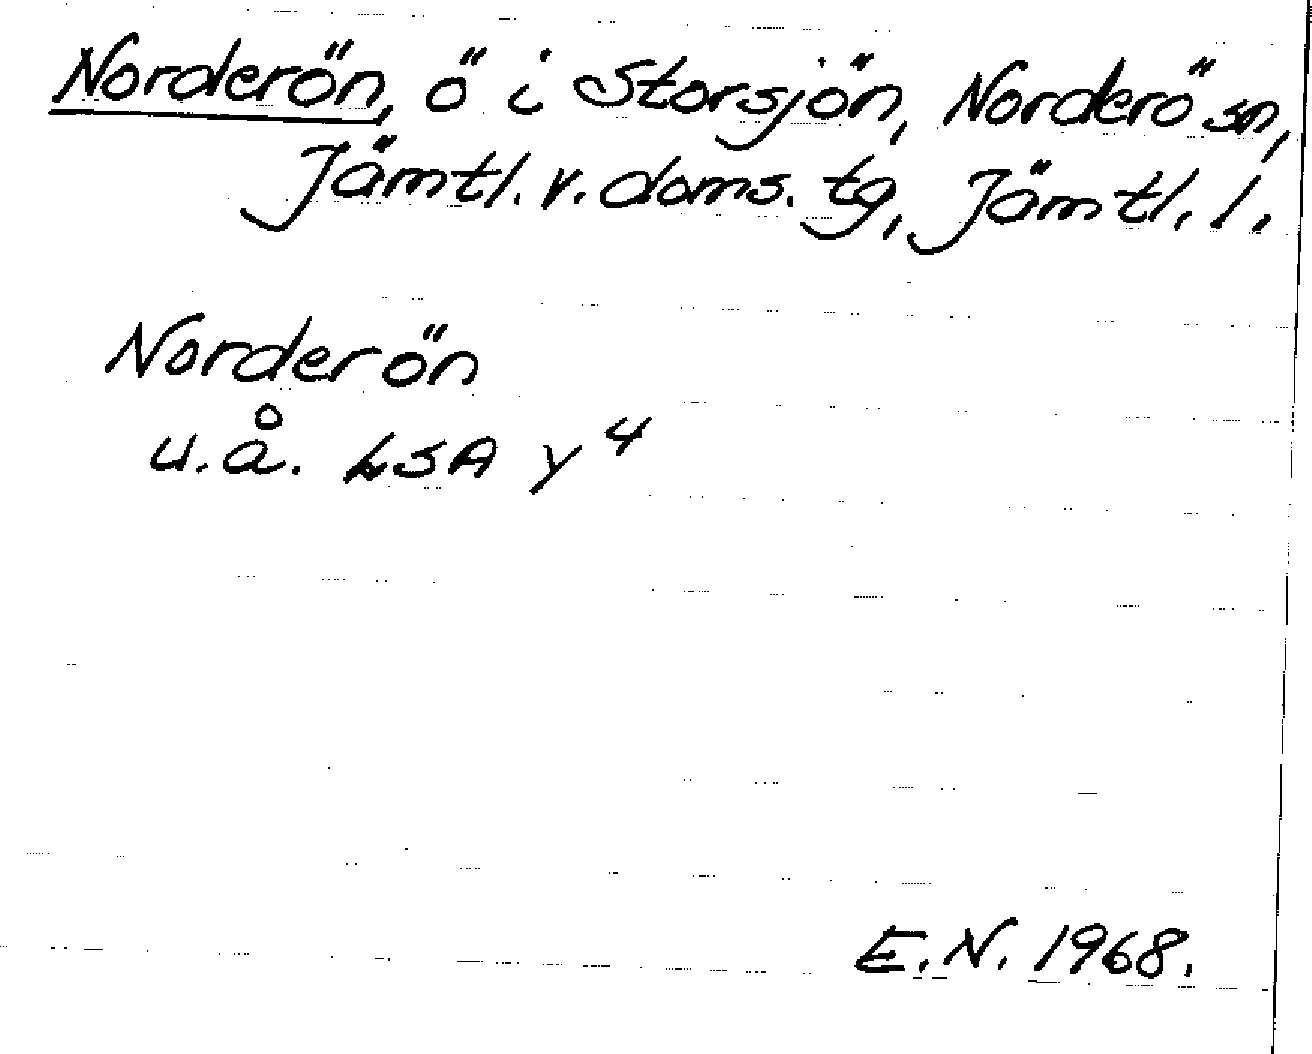 Norderön, ö i Storsjön, Norderö sn,
Jämtl. v. doms. tg, Jämtl. l.
Norderön
u.å. LSA y 4
E.N. 1968.